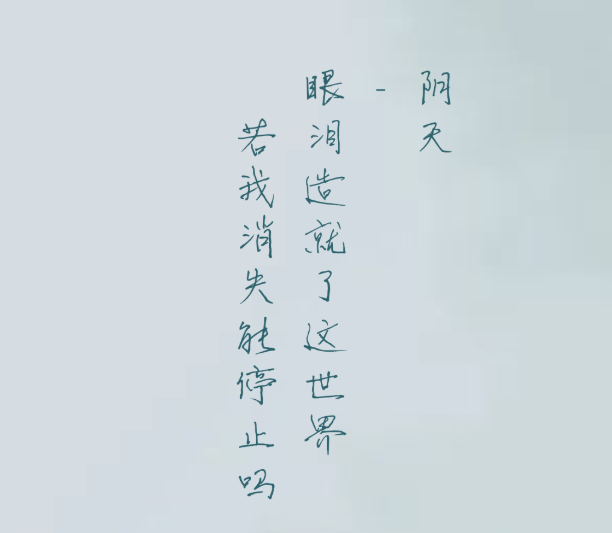 阴天
-
眼泪造就了这世界
若我消失能停止吗